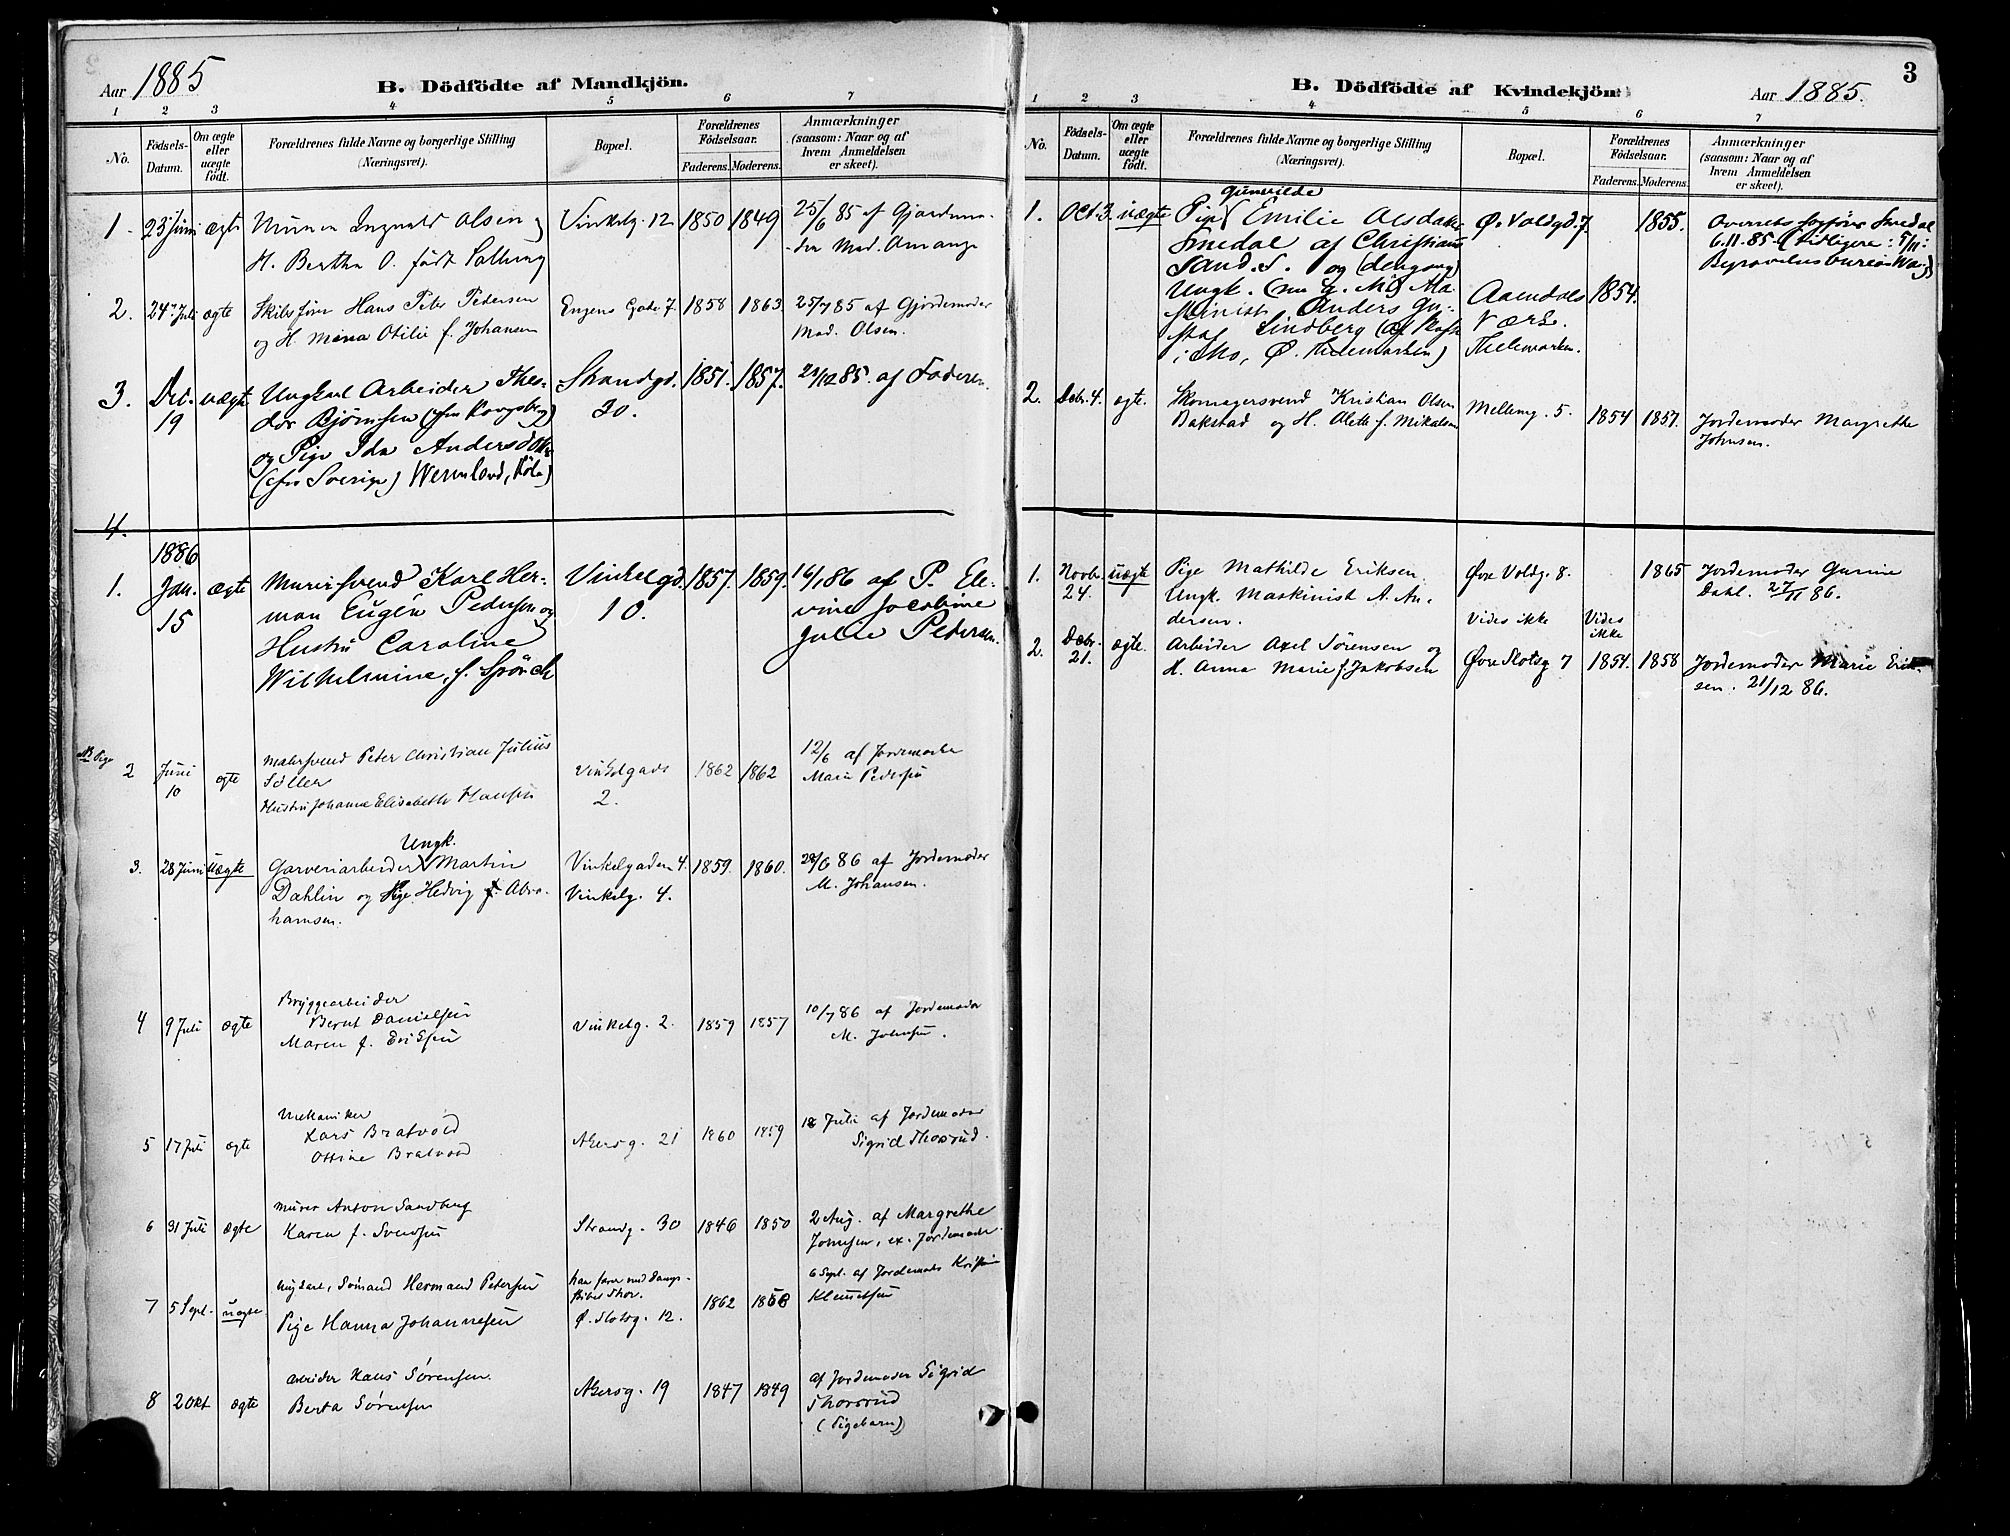 Aar 1885
B. Dödfödte af Mandkjön.
1 2 3 4 5 6 7
No.
Födsels-Datum.
Om ægte eller uægte födt.
Forældrenes fulde Navne og borgerlige Stilling (Næringsvet).
Bopæl.
Forældrenes Födselsaar.
Faderens. Moderens.
Anmærkninger (saasom: Naar og af hvem Anmeldelsen er skeet).
1. 23 Juni ægte
Murer Ingvald Olsen og
H. Bertha O. født
Vinkelg. 12 1850 1849
25/6 85 af Gjordemo-
der Mad.
2. 24 Juli ægte
Skibsfører Hans Peter Pedersen
og H. Mina Otilie f. Johansen
Engens Gade 7. 1858 1863
25/7 85 af Gjordemoder
Mad. Olsen.
3. Dec. 19 uægte
Ungkarl Arbeider Theo-
dor Bjørnsen (fra Kongsberg)
og Pige Ida Andersdatter
(fra Sverige) Wermland,
Strandgd. 30. 1851. 1857.
12 85. af Faderen.
4.
1886
1. Jan. 15 ægte
Murersvend Karl Her-
man Eugén Pedersen og
Hustru Caroline
Wilhelmine, f. Spörck
Vinkelgd. 10. 1857. 1859.
16/1 86 af P. Ele-
vine Jacobine
Julie Petersen.
NB Pige
2 Juni 10 ægte
Malersvend Peter Christian Julius
Søller
Hustru Johanne Elisabeth Hansen
Vinkelgade 2. 1862 1862
12/6 af Jordemoder
Marie Pedersen
3. 28 Juni uægte
Ungk.
Garveriarbeider Martin
Dahlin og Pige Hedvig f. Abra-
hamsen.
Vinkelgaden 4. 1859. 1860.
Vinkelg. 4.
28/6 86 af Jordemoder
M. Johansen.
4 9 Juli ægte
Bryggearbeider
Bernt Danielsen
Maren f. Eriksen
Vinkelg. 2. 1859 1857
10/7 86 af Jordemoder
M. Johnsen.
5 17 Juli ægte
Mekaniker
Lars Bratvold
Ottine Bratvold
Akersg. 21 1860 1859
18 Juli af Jordemoder
Sigrid Thorsrud.
6 31 Juli ægte
Murer Anton Sandberg
Karen f. Svendsen
Strandg. 30 1846 1850
2 Aug. af Margrethe
Johnsen, ex. Jordemoder.
7 5 Sept. uægte
Ungkarl, Sømand Hermand Petersen
Pige Hanna Johannesen
han farer med Damp-
skibet Thor.
Ø. Slotsg. 12. 1862
6 Sept. af Jordemoder Kristine
Klemetsen
8 2 Okt ægte
Arbeider Hans Sørensen.
Berta Sørensen
Akersg. 19 1847 1849
af Jordemoder Sigrid
Thorsrud
(Pigebarn)
3
B. Dödfödte af Kvindekjön.
Aar 1885.
1 2 3 4 5 6 7
No.
Födsels-Datum.
Om ægte eller uægte födt.
Forældrenes fulde Navne og borgerlige Stilling (Næringsvet).
Bopæl.
Forældrenes Födselsaar.
Faderens. Moderens.
Anmærkninger (saasom: Naar og af hvem Anmeldelsen er skeet).
1. Oct 3. uægte
Gunvilde
Pige Emilie
Smedal af Christian-
sand. S. og (dengang)
Ungk. (nu g. M.) Ma-
skinist Anders Gu-
staf Lindberg
i Mo, Ø. Thelemarken)
Ø. Voldgd. 7. 1855.
1854.
Værk.
Thelemarken.
Overretssagfører Smedal
6.11.85. (tidligere: 5/11:
2. Debr. 4. ægte.
Skomagersvend Kristian Olsen
Bakstad og H. Alette f. Mikalsen
Mellemg. 5. 1854 1857.
Jordemoder Margrethe
Johnsen.
1. Novbr. 24. uægte
Pige Mathilde Eriksen.
Ungk. Maskinist A. An-
dersen.
Øvre Voldg. 8. 1865
Vides ikke Vides ikke
Jordemoder Gunine
Dahl. 27/11 86.
2. Decbr. 21. ægte.
Arbeider Axel Sørensen og
H. Anna Marie f. Jakobsen
Øvre Slotsg 7 1854. 1858
Jordemoder Marie Erik-
sen. 21/12 86.